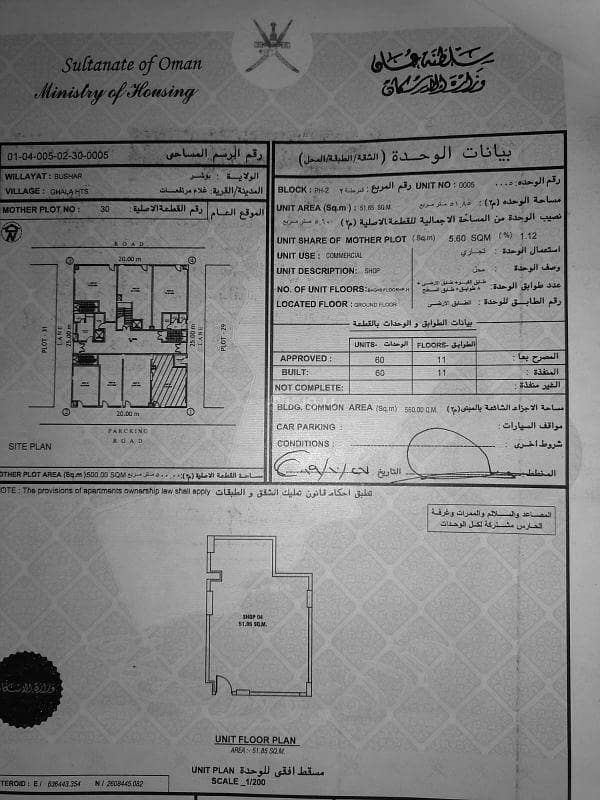 Sultanate of Oman
Ministry of Housing
سلطنة عمان
وزارة الإسكان
01-04-005-02-30-0005 رقم الرسم المساحي
WILLAYAT : BUSHAR الولاية : بوشر
VILLAGE : GHALA HTS المدينة/القرية: غلاء مرتفعات
MOTHER PLOT NO : 30 رقم القطعة الاصلية : ٣٠ الموقع العام
N
ROAD
20.00 m
3
4
PLOT - 31
LANE
25.00 m
25.00 m
LANE
PLOT - 29
2
1
20.00 m
PARCKING
ROAD
SITE PLAN
MOTHER PLOT AREA (Sq.m) 500.00 SQM مساحة القطعة الاصلية (م٢)
بيانات الوحدة (الشقة/الطبقة/المحل)
BLOCK : PH-2 رقم المربع UNIT NO : 0005 رقم الوحده : ٠٠٠٥
UNIT AREA (Sq.m) : 51.85 SQ.M. مساحة الوحده (م٢) :
نصيب الوحدة من المساحة الاجمالية للقطعة الاصلية (م٢)
UNIT SHARE OF MOTHER PLOT (Sq.m) 5.60 SQM (%) 1.12
UNIT USE : COMMERCIAL تجاري استعمال الوحدة :
UNIT DESCRIPTION: SHOP محل وصف الوحدة :
NO. OF UNIT FLOORS: عدد طوابق الوحدة :
LOCATED FLOOR : GROUND FLOOR الطابق الارضي رقم الطابق للوحدة :
بيانات الطوابق و الوحدات بالقطعة
UNITS- الوحدات FLOORS- الطوابق
APPROVED : 60 11 المصرح بها :
BUILT: 60 11 المنفذة :
NOT COMPLETE: الغير منفذة :
BLDG. COMMON AREA (Sq.m) 560.00 Q.M. مساحة الاجزاء الشائعة بالمبنى (م٢)
CAR PARKING : مواقف السيارات :
CONDITIONS : شروط اخرى :
التاريخ المخطط
NOTE : The provisions of apartments ownership law shall apply تطبق احكام قانون تمليك الشقق و الطبقات
المصاعد والسلالم والممرات وغرفة
الحارس مشتركة لكل الوحدات
SHOP 04
51.85 SQ.M.
وزارة الإسكان
UNIT FLOOR PLAN
AREA :- 51.85 SQ.M.
UNIT PLAN مسقط افقي للوحدة
SCALE _1/200
TEROID : E / 636443.354 N / 2608445.082